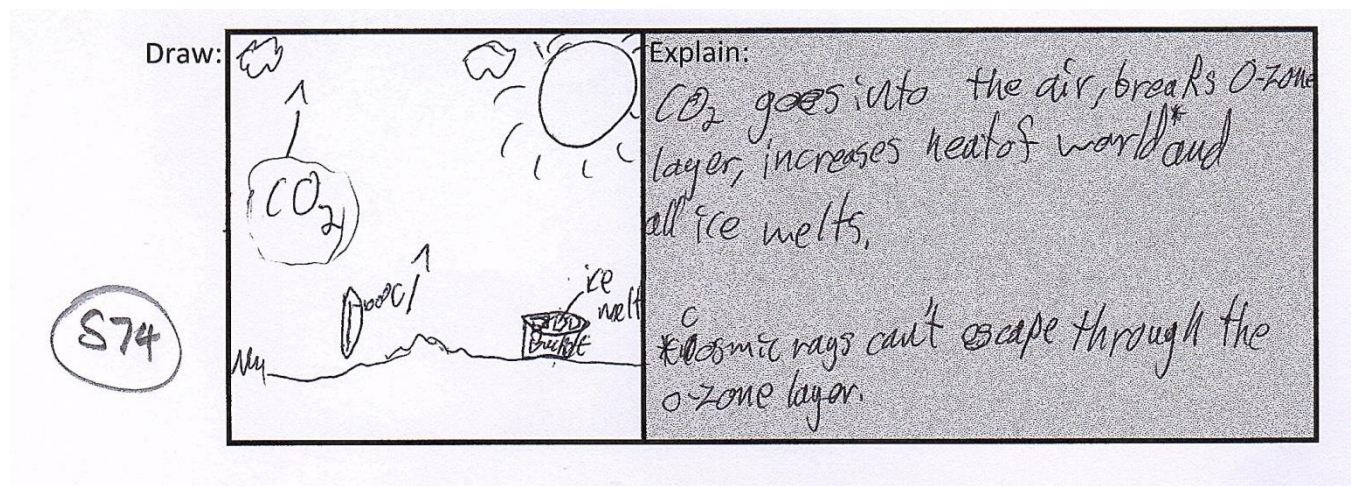 Draw:
CO₂
ice
melt
S74
Explain:
CO₂ goes into the air, breaks O-zone
layer, increases heat of world* and
all ice melts.
* Cosmic rays can't escape through the
o-zone layer.